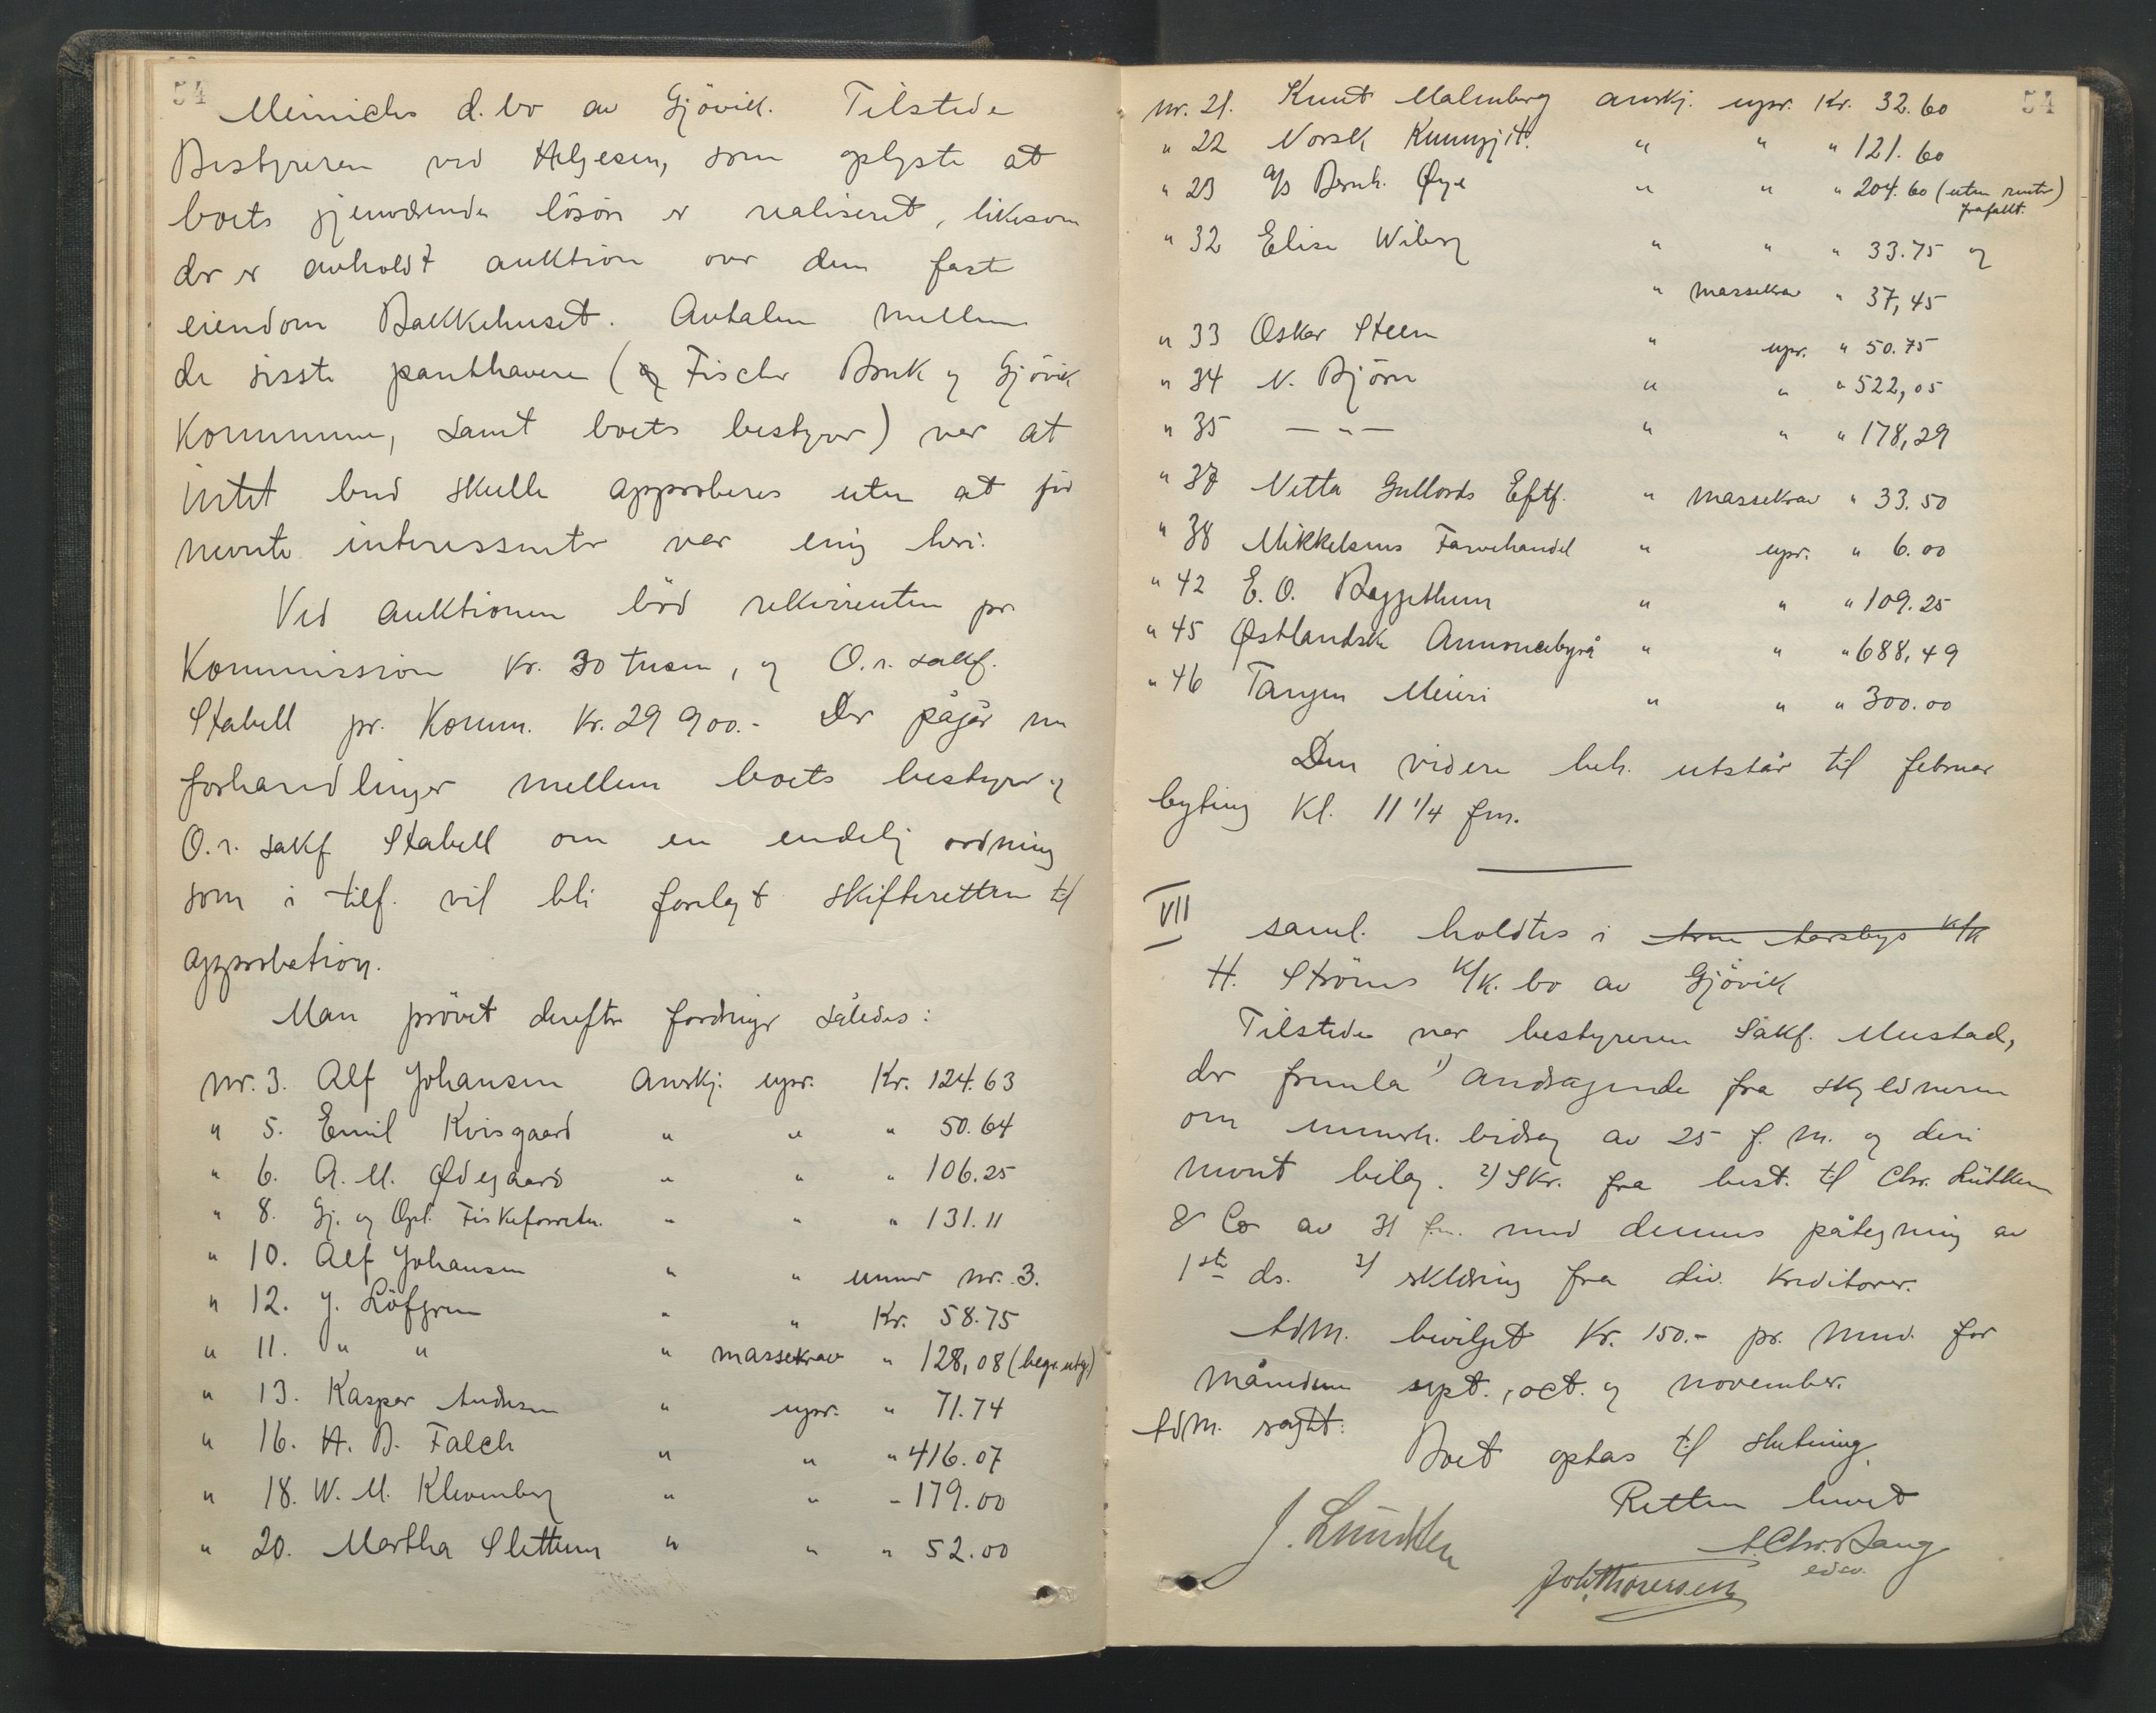 54
Meinichs d.bo av Gjövik. Tilstede
Bestyreren ved Helgesen, som oplyste at
boets gjenværende lösöre er realiseret, likesom
der er avholdt auktion over den faste
eiendom Bakkehuset. Avtalen mellem
de sisste panthavere (og Fischer Bruk og Gjövik
Kommune, samt boets bestyrer) var at
intet bud skulle approberes uten at
nevnte interessenter var enig heri.
Ved auktionen böd rekvirenten pr
Kommission Kr. 30 tusen, og O.r. sakf.
Stabell pr. Komm. Kr. 29 900.- Der pågår nu
forhandlinger mellem boets bestyrer og
O.r. sakf Stabell om en endelig ordning
som i tilf. vil bli forelagt skifteretten til
approbation.
Man prövet derefter fordringer således:
nr. 3. Alf Johansen Anerkj. upr. Kr. 124.63
" 5. Emil Kvisgaard " " " 50.64
" 6. A. M. Ødegaard " " " 106.25
" 8. Gj. og Opl. Fiskeforretn. " " " 131.11
" 10. Alf Johansen " " under nr. 3.
" 12. J. Löfgren " " Kr. 58.75
" 11. " " " massekrav " 128,08 (begr.utg.)
" 13. Kasper Andersen " upr. " 71.74
" 16. H. B. Falch " " " 416.07
" 18. W. M. Klevenberg " " " 179.00
" 20. Martha Slettum " " " 52.00
54
nr. 21. Knut Malmberg anerkj. upr. Kr. 32.60
" 22 Norsk " " " 121.60
" 23 A/S Bernh. Øye " " " 204.60 (uten renter)
frafallt.
" 32 Elise Wiberg " " " 33.75 og
" massekrav " 37,45
" 33 Oskar Steen " upr. " 50.75
" 34 N. Björn " " " 522,05
" 35 — " — " " " 178,29
" 37 Netta Gullords Eftf. " massekrav " 33.50
" 38 Mikkelsens Farvehandel " upr. " 6.00
" 42 E. O. Baggethun " " " 109.25
" 45 Østlandske Annoncebyrå " " " 688,49
" 46 Tangen Meieri " " " 300.00
Den videre beh. utstår til februar
byting Kl. 11 1/4 fm.
VII
saml. holdtes i Arne Aarsbys K/K
H. Ströms K/K. bo av Gjövik
Tilstede var bestyreren Sakf. Mustad,
der fremla 1) andragende fra skyldneren
om underh. bidrag av 25 f. m. og deri
nevnt bilag. 2) Skr. fra best. til Chr. Lütken
& Co av 31 f.m. med dennes påtegning av
1ste ds. 3) erklæring fra div. kreditorer.
Adm. bevilget Kr. 150.- pr. mnd. for
månedene sept., oct. og november.
Adm. sagt: Boet optas til slutning.
Retten hevet
J. Lundsten
A. Chr. Bang
edsv.
Joh. Thoresen